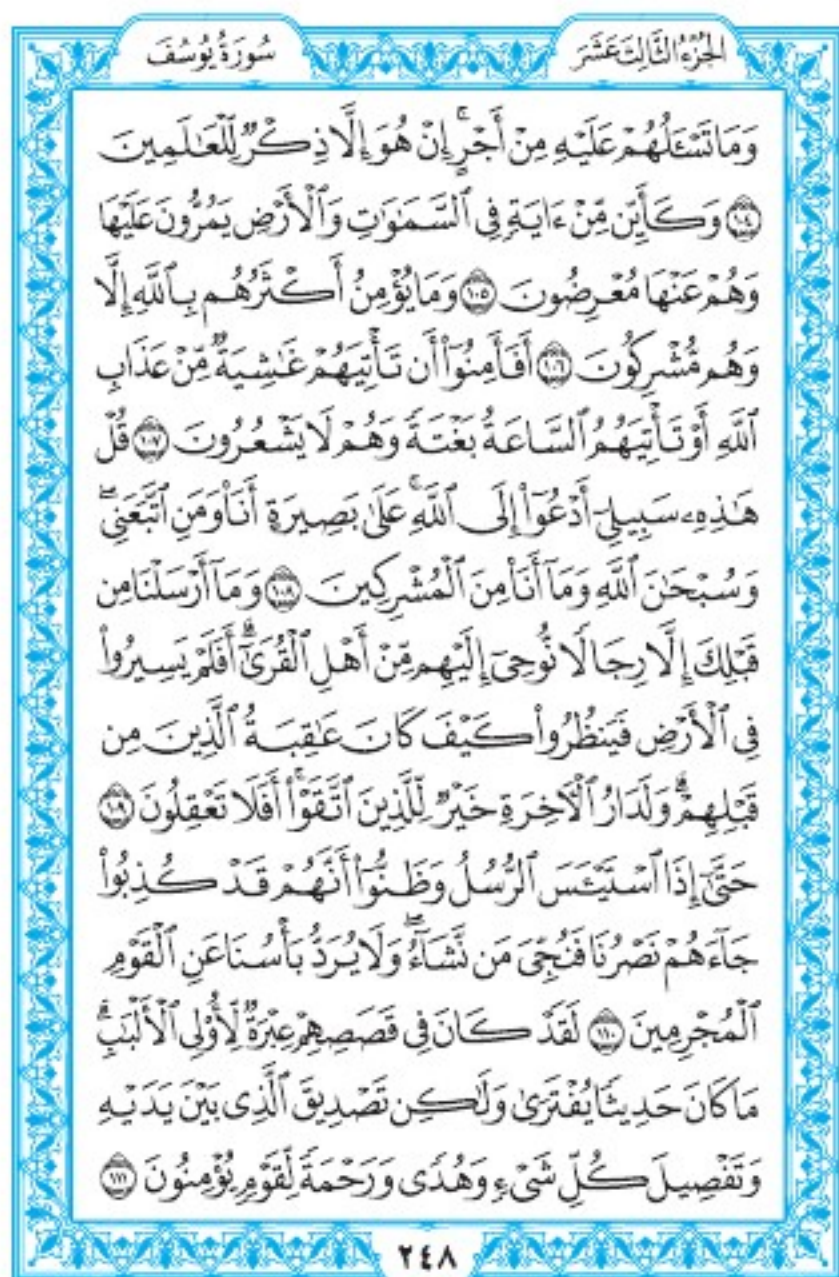 الجُزْءُ الثَّالِثَ عَشَرَ
سُورَةُ يُوسُفَ
وَمَا تَسْـَٔلُهُمْ عَلَيْهِ مِنْ أَجْرٍ ۚ إِنْ هُوَ إِلَّا ذِكْرٌ لِّلْعَـٰلَمِينَ
١٠٤ وَكَأَيِّن مِّنْ ءَايَةٍ فِى ٱلسَّمَـٰوَٰتِ وَٱلْأَرْضِ يَمُرُّونَ عَلَيْهَا
وَهُمْ عَنْهَا مُعْرِضُونَ ١٠٥ وَمَا يُؤْمِنُ أَكْثَرُهُم بِٱللَّهِ إِلَّا
وَهُم مُّشْرِكُونَ ١٠٦ أَفَأَمِنُوٓا۟ أَن تَأْتِيَهُمْ غَـٰشِيَةٌ مِّنْ عَذَابِ
ٱللَّهِ أَوْ تَأْتِيَهُمُ ٱلسَّاعَةُ بَغْتَةً وَهُمْ لَا يَشْعُرُونَ ١٠٧ قُلْ
هَـٰذِهِۦ سَبِيلِىٓ أَدْعُوٓا۟ إِلَى ٱللَّهِ ۚ عَلَىٰ بَصِيرَةٍ أَنَا۠ وَمَنِ ٱتَّبَعَنِى ۖ
وَسُبْحَـٰنَ ٱللَّهِ وَمَآ أَنَا۠ مِنَ ٱلْمُشْرِكِينَ ١٠٨ وَمَآ أَرْسَلْنَا مِن
قَبْلِكَ إِلَّا رِجَالًا نُّوحِىٓ إِلَيْهِم مِّنْ أَهْلِ ٱلْقُرَىٰٓ ۗ أَفَلَمْ يَسِيرُوا۟
فِى ٱلْأَرْضِ فَيَنظُرُوا۟ كَيْفَ كَانَ عَـٰقِبَةُ ٱلَّذِينَ مِن
قَبْلِهِمْ ۗ وَلَدَارُ ٱلْـَٔاخِرَةِ خَيْرٌ لِّلَّذِينَ ٱتَّقَوْا۟ ۗ أَفَلَا تَعْقِلُونَ ١٠٩
حَتَّىٰٓ إِذَا ٱسْتَيْـَٔسَ ٱلرُّسُلُ وَظَنُّوٓا۟ أَنَّهُمْ قَدْ كُذِبُوا۟
جَآءَهُمْ نَصْرُنَا فَنُجِّىَ مَن نَّشَآءُ ۖ وَلَا يُرَدُّ بَأْسُنَا عَنِ ٱلْقَوْمِ
ٱلْمُجْرِمِينَ ١١٠ لَقَدْ كَانَ فِى قَصَصِهِمْ عِبْرَةٌ لِّأُو۟لِى ٱلْأَلْبَـٰبِ ۗ
مَا كَانَ حَدِيثًا يُفْتَرَىٰ وَلَـٰكِن تَصْدِيقَ ٱلَّذِى بَيْنَ يَدَيْهِ
وَتَفْصِيلَ كُلِّ شَىْءٍ وَهُدًى وَرَحْمَةً لِّقَوْمٍ يُؤْمِنُونَ ١١١
٢٤٨